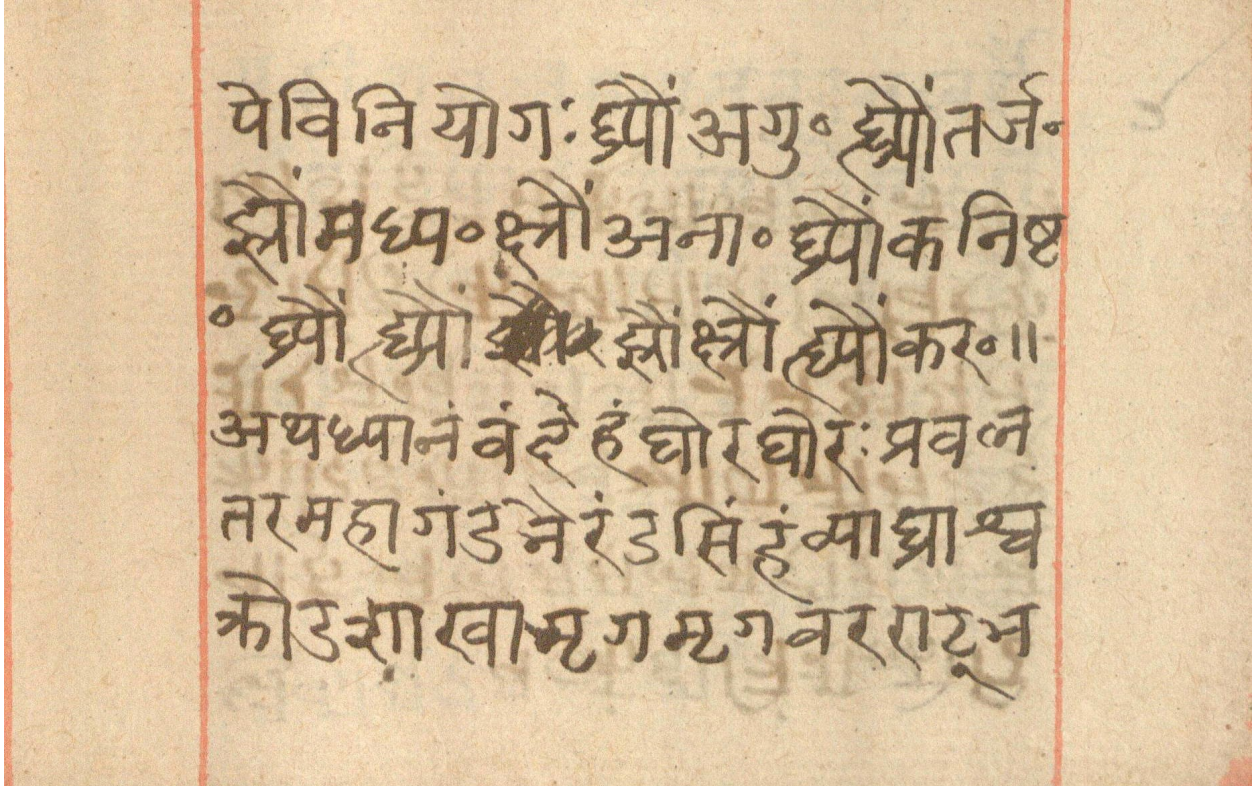 पे विनियोगः घ्रौं अगु॰ ह्रौं तर्ज॰
झ्रौं मध्य॰ क्ष्रौं अना॰ घ्रौं कनिष्ट
॰ घ्रौं ह्रौं झ्रौं क्ष्रौं ह्रौं कर॰॥
अथ ध्यानं वंदेहं घोरघोरः प्रवल
तरमहागंडनेरंडसिंहं व्याघ्राश्व
क्रोडशाखामृगमृगवरराट्भ